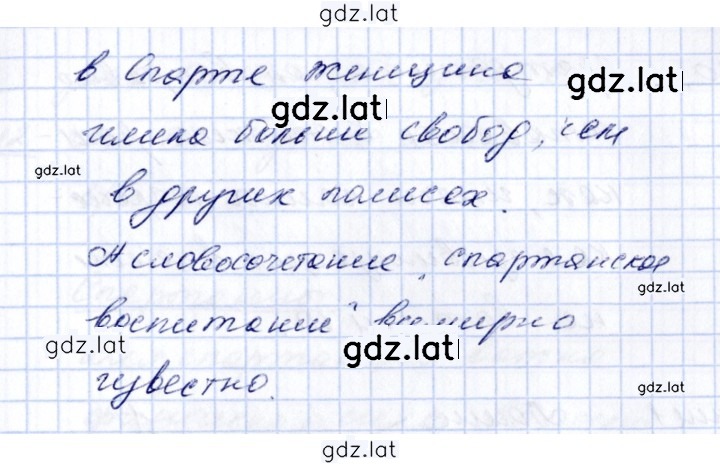 gdz.lat
в Спарте женщина
gdz.lat
gdz.lat
имела больше свобод, чем
gdz.lat
в других полисах.
А словосочетание "спартанское
gdz.lat
воспитание" всемирно
gdz.lat
gdz.lat
известно.
gdz.lat
gdz.lat